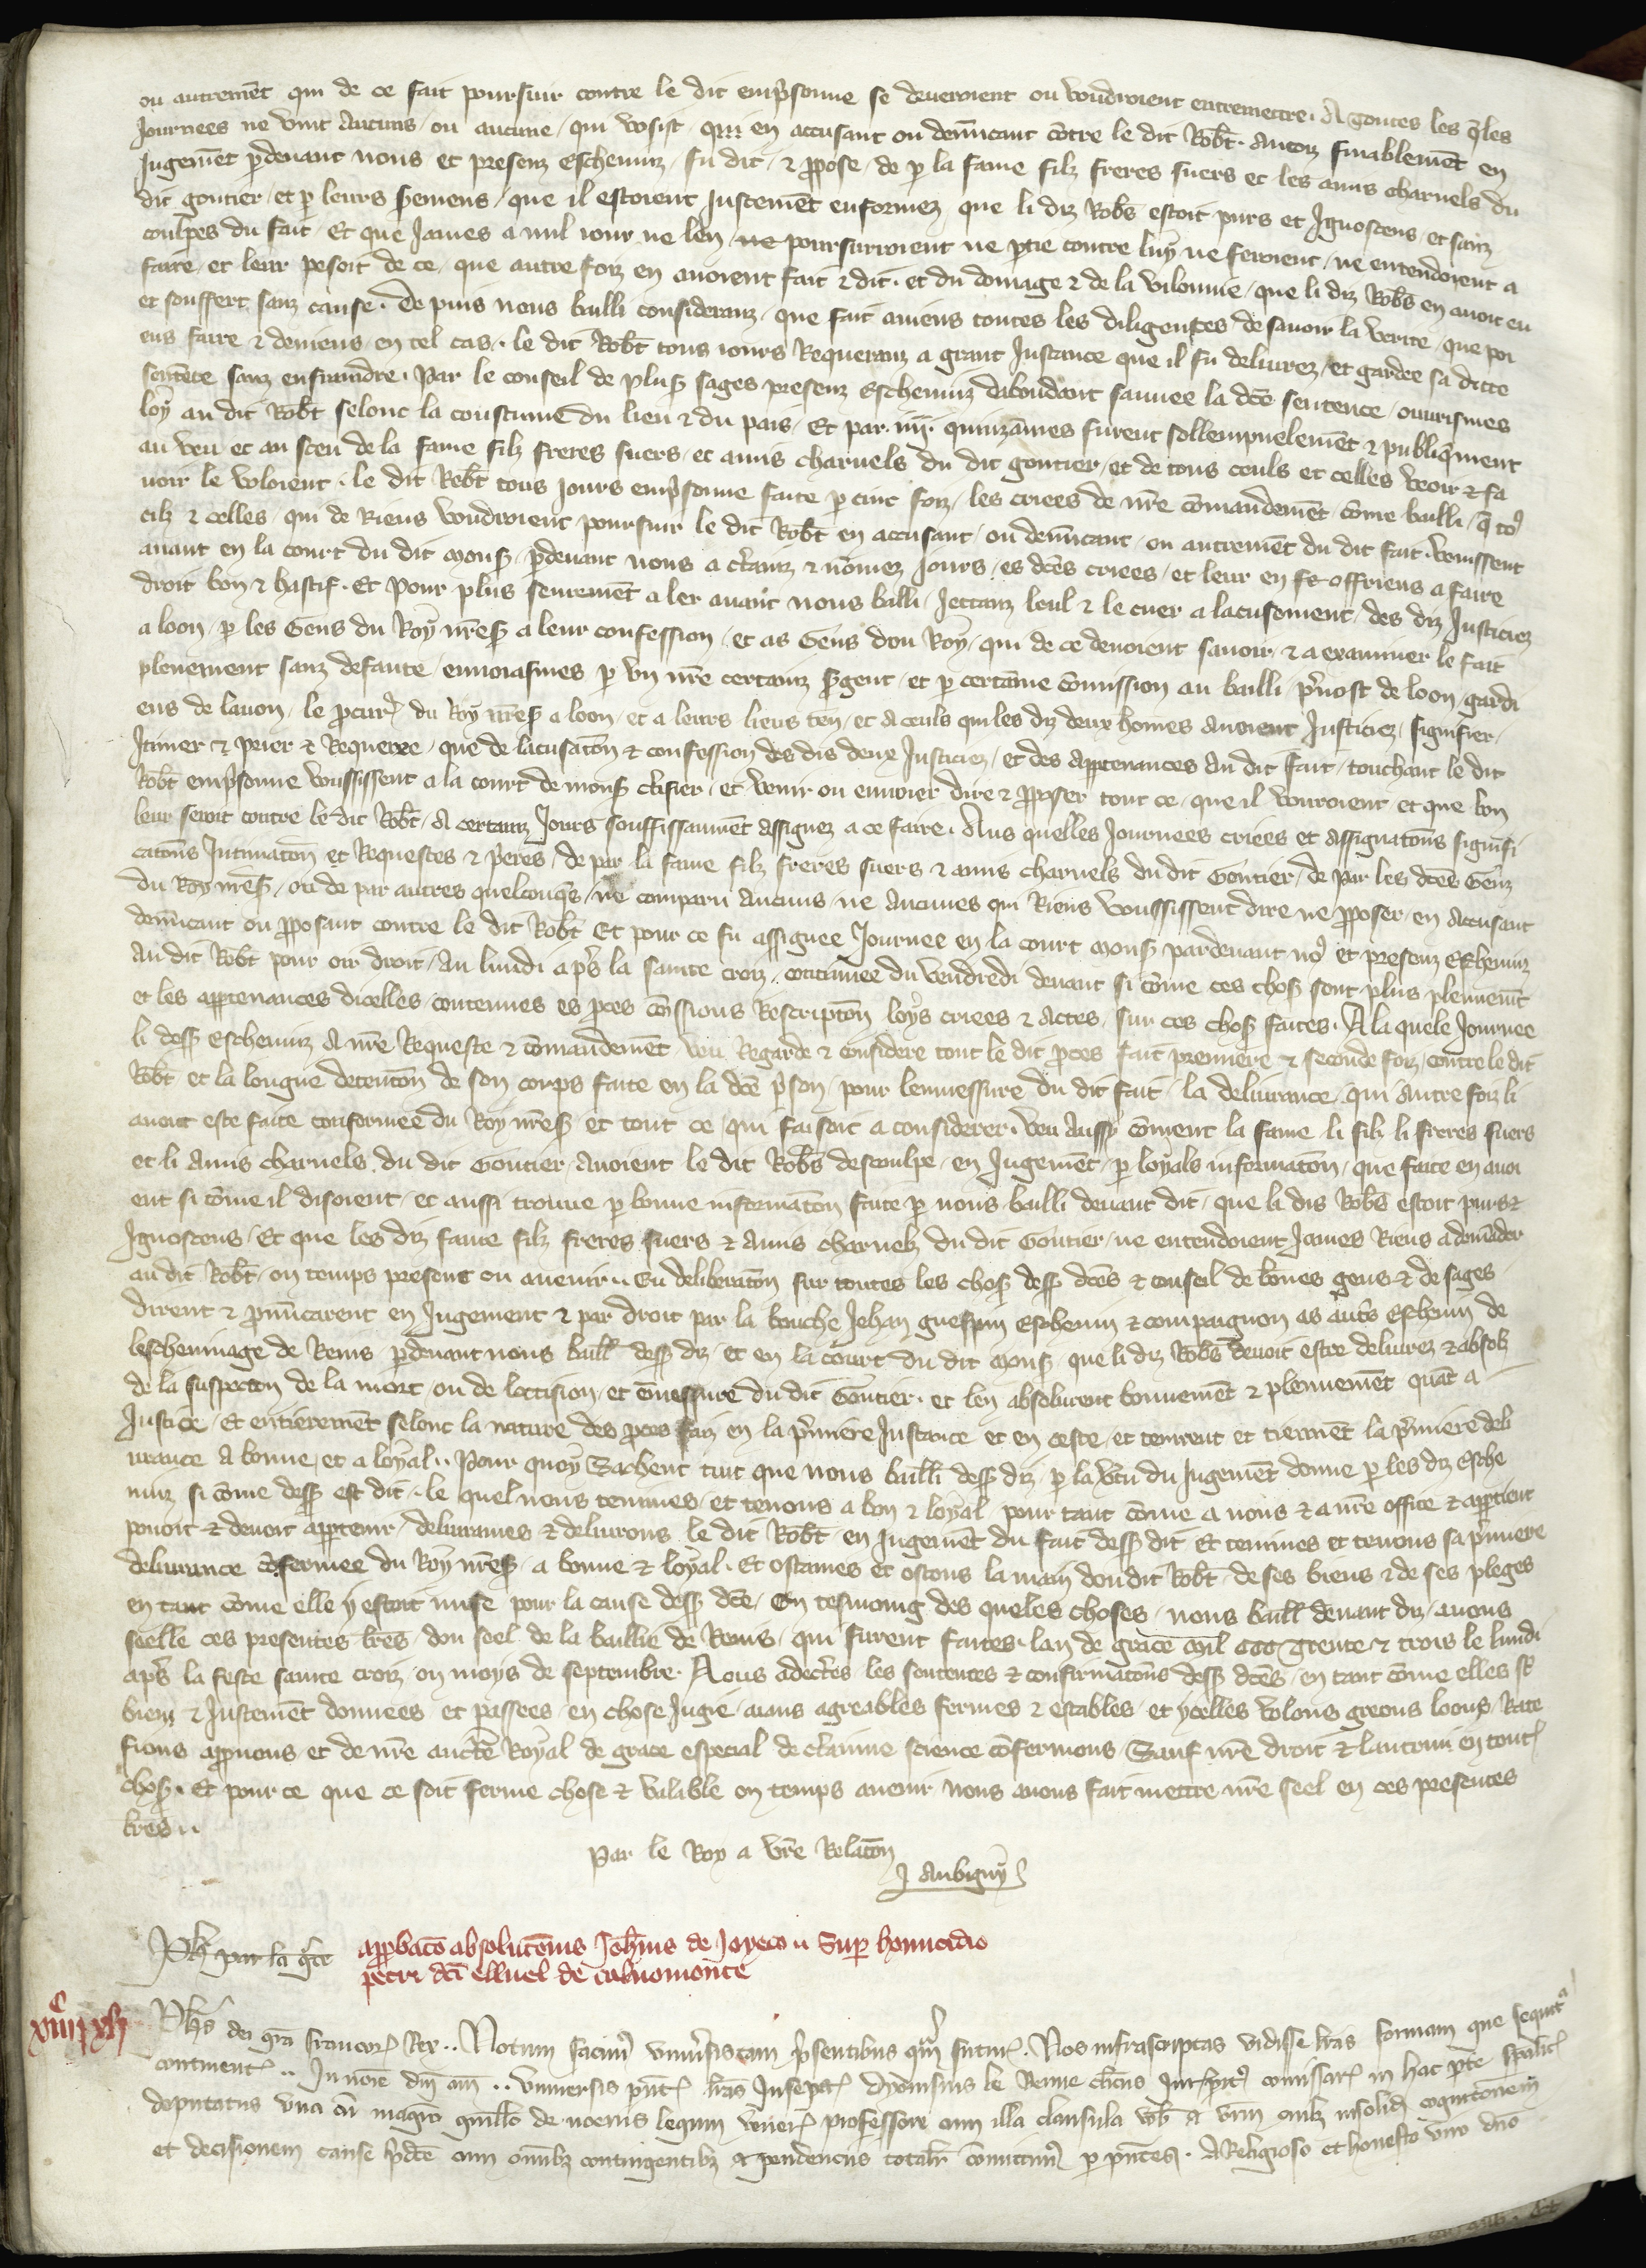 ou autremēt qui de ce fait poursuir contre le dit emp̾sonne se deueroient ou voudroient entremettre. A toutes les q̄les
Journees ne vint Aucuns / ou aucune / qui vosist / qui en accusant ou denūcant cōtre le dit Rob̄t. Ancorz finablemēt en
Jugemēt p̱deuant nous et presenz Escheuinz / fu dit / ⁊ ꝓpose / de ꝑ la fame filz freres suers et les amis charnels du
dit goutier / et ꝑ leurs seremens / que il estoient Justemēt enformez que li diz Rob̄s estoit purs et Ignoscens / et sanz
coulpes du fait / Et que James a nul iour ne len poursuiroient ne ꝑtie contre luy ne feroient / ne entendoient a
faire / et leur pesoit de ce / que autre foiz en auoient fait ⁊ dit. et du domage ⁊ de la vilonnie / que li diz Rob̄s en auoit eu
et souffert sanz cause. De puis nous bailli consideranz / que fait auiens toutes les diligences de sauoir la verite / que poi
ens faire ⁊ deuiens en tel cas. le dit Rob̄t tous iours Requeranz a grant Instance que il fu deliurez / et gardee sa ditte
sentēce sanz enfraindre. Par le conseil de plus̉ sages presenz Escheuinz dabondant sauuee la dc̄e sentence / ouurismes
loy au dit Rob̄t selonc la coustume du lieu ⁊ du pais / Et par .iiij. quinzaīnes furent sollempnelemēt ⁊ publiq̄ment
au veu et au sceu de la fame filz freres suers / et amis charnels du dit goutier / et de tous ceuls et celles veoir ⁊ sa
uoir le voloient. le dit Rob̄t tous Jours emp̾sonne faite ꝑ cinc foiz / les criees de nr̄e cōmandemēt cōme bailli / q̄ to9
cilz ⁊ celles / qui de Riens voudroient poursuir le dit Rob̄t en accusant / ou denūcant / ou autremēt du dit fait. venissent
auant en la court du dit mons̉ / p̱deuant nous a c̾tainz ⁊ nōmez Jours / es dc̄es criees / et leur en offriens a faire
droit bon ⁊ hastif. Et Pour plus seuremēt a ler auant nous balli / Jettanz leul ⁊ le cuer a lacusement / des diz Justiciez
a loon / ꝑ les Gens du Roy nr̄es̉ a leur confession / et as Gens dou Roy / qui de ce deuoient sauoir / ⁊ a examiner le fait
plenement sanz defaute / enuoiasmes ꝑ vn nr̄e certainz s̉gent / et ꝑ certaīne cōmission au bailli / p̾uost de loon / gardi
ens de lauon / le ꝓcur̉ du Roy nr̄es̉ a loon / et a leurs lieus ten̄ / et a ceuls qui les diz deux homes auoient Justiciez / signifier /
Jtimer ⁊ prier ⁊ Requerre / que de lacusatōn ⁊ confession des dis deux Justiciez / et des apꝑtenances au dit fait / touchant le dit
Rob̄t emp̾sonne voussissent a la court de mons̉ c̾tifier / et venir ou enuoier dire ⁊ ꝓposer tout ce / que il vouroient et que bon
leur seroit contre le dit Rob̄t / A certainz Jours souffissanmēt assignez a ce faire. Aus quelles Journees criees et assignatōns signifi
catōns Intimatōn et Requestes ⁊ p̾eres / de par la fame filz freres suers ⁊ amis charnels du dit Goutier / de par les dc̄es Genz
du Roy nr̄es̉ / ou de par autres quelconq̄s / ne comparu Aucuns / ne Aucunes qui Riens voussissent dire ne ꝓposer / en Accusant
denūcant ou ꝓposant contre le dit Rob̄t Et pour ce fu assignee Journee en la court mons̉ pardeuant no9 et presenz Escheuinz
au dit Rob̄t pour oir droit / Au lundi ap̾s la sainte croiz / cōtinuee du vendredi deuant si cōme ces chos̉ sont plus plenemēt
et les apꝑtenances dicelles contenues es ꝓces cōmssions Rescriptōn loys criees ⁊ actes / sur ces chos̉ faites. A la quele Journee
li dess̉ escheuinz A nr̄e Requeste ⁊ cōmandemēt veu Regarde ⁊ considere tout le dit ꝓces fait premiere ⁊ seconde foiz / contre le dit
Rob̄t et la longue detentōn de son corps faite en la dc̄e p̾son / pour lennessure du dit fait / la deliurance / qui autre foiz li
auoit este faite confermee du Roy nr̄es̉ et tout ce / qui faisoit a considerer. veu Aussy cōment la fame li filz li freres suers
et li Amis charnels du dit Goutier / Auoient le dit Rob̄s descoulpe / en Jugemēt / ꝑ loyals informatōn / que faite en auoi
ent si cōme il disoient / et aussi trouue ꝑ bonne informatōn faite ꝑ nous bailli deuant dit / que li dis Rob̄s estoit purs ⁊
Ignoscens / Et que les diz fame filz freres suers ⁊ Amis charnelz du dit Goutier / ne entendoient James Riens a demāder
au dit Rob̄t / ou temps present ou auenir .. Eu deliberatōn sur toutes les chos̉ dess̉ dc̄es ⁊ conseil de bōnes gens ⁊ de sages
dirent ⁊ pronūcerent en Jugement ⁊ par droit par la bouche Jehan guespin Escheuin ⁊ compaignon as aut̾s Escheuin de
lescheuinage de Reins p̱deuant nous baill̄ dess̉ diz / et en la court du dit mons̉ que li diz Rob̄s deuoit estre deliurez ⁊ absolz
de la suspectōn de la mort / ou de loccision / et ennessure du dit Goutier. et len absolurent bonnemēt ⁊ plennemēt quāt a
Justice / Et entieremēt selonc la nature des ꝓces faiz en la p̾miere Instance et en ceste / et tenirent et tiennēt la p̾miere deli
urance a bonne / et a loyal .. Pour quoy Sachent tuit que nous bailli dess̉ diz / ꝑ la v̾tu du Jugemēt donne ꝑ les diz Esche
uinz si cōme dess̉ est dit. le quel nous tenimes / et tenons a bon ⁊ loyal pour tant cōme a nous ⁊ a nr̄e office ⁊ apꝑtient
pouoit ⁊ deuoit apꝑtenir / deliurames ⁊ deliurons le dit Rob̄t en Jugemēt du fait dess̉ dit Et tenimes et tenons sa p̾miere
deliurance cōfermee du Roy nr̄es̉ / a bonne ⁊ loyal. Et ostames et ostons la main dou dit Rob̄t / de ses biens ⁊ de ses pleges
en tant cōme elle y estoit mise pour la cause dess̉ dc̄e / En tesmoing des queles choses / nous baill̄ deuant diz / auons
seelle ces presentes lr̄es / dou seel de la baillie de Reins / qui furent faites lan de grace mil ccc trente ⁊ trois le lundi
ap̾s la feste sainte croiz / ou moys de septembre. Nous adec̾tes les sentences ⁊ confirmatōns dess̉ dc̄es / en tant cōme elles s̄t
bien ⁊ Justemēt donnees et passees / en chose Jugie / aians agreables fermes ⁊ estables / et ycelles volons greons loons / Rate
fions aprouons / et de nr̄e auctē Royal de grace especial de c̾taīnne science cōfermons / Sauf nr̄e droit ⁊ lautrui en toutꝭ
chos̉. Et pour ce que ce soit ferme chose ⁊ valable ou temps auenir nous auons fait mettre nr̄e seel en ces presentes
lr̄es ..
Par le Roy a vr̄e Relatōn
J Aubigny
Ph̄ par la gr̄ce
aꝓbacō absolutōnis Joh̄nis de Joyaco .. Super homicidio
petri dc̄i elluel de caluomonte
xiiijͨ xlj
Ph̄s dei gr̄a francorꝝ Rex .. Notum facim9 vniu̾sis tam p̾sentibus q̄m futurꝭ. Nos infrascriptas vidisse lr̄as formam que sequit̾
continentꝭ .. In noīe dn̄i am̄ .. Vniuersis p̄ntꝭ lr̄as Inspectꝭ Dyonisius le cl̾icus comissarꝭ in hac p̱te sp̄alit̾
deputatus vna cū magr̄o guill̄o de noeriis legum ven̾e professore cum illa clausula vob̄ ⁊ vr̄m cuilz insolid̄ cognitōnem
et decisionem cause p̾dc̄e cum om̄ibz contingentibz ⁊ pendenciis totalit̾ cōmittim9 ꝑ p̄ntes. A Religioso et honesto viro dn̄o